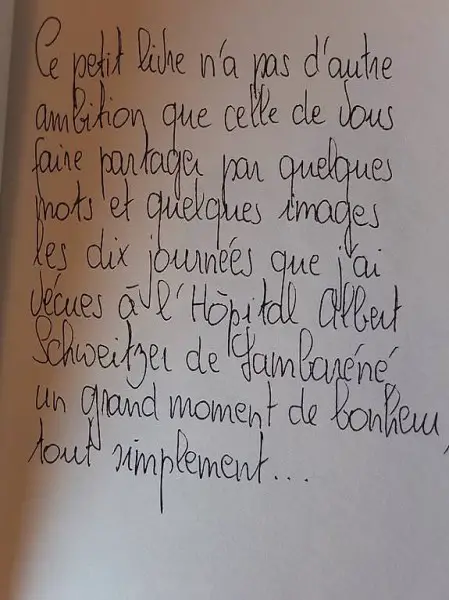 Ce petit livre n'a pas d'autre
ambition que celle de vous
faire partager par quelques
mots et quelques images
les dix journées que j'ai
vécues à l'Hôpital Albert
Schweitzer de Lambaréné,
un grand moment de bonheur,
tout simplement...